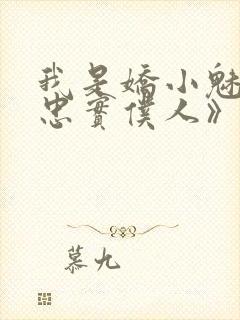 我是嬌小魅
忠實僕人》
慕九